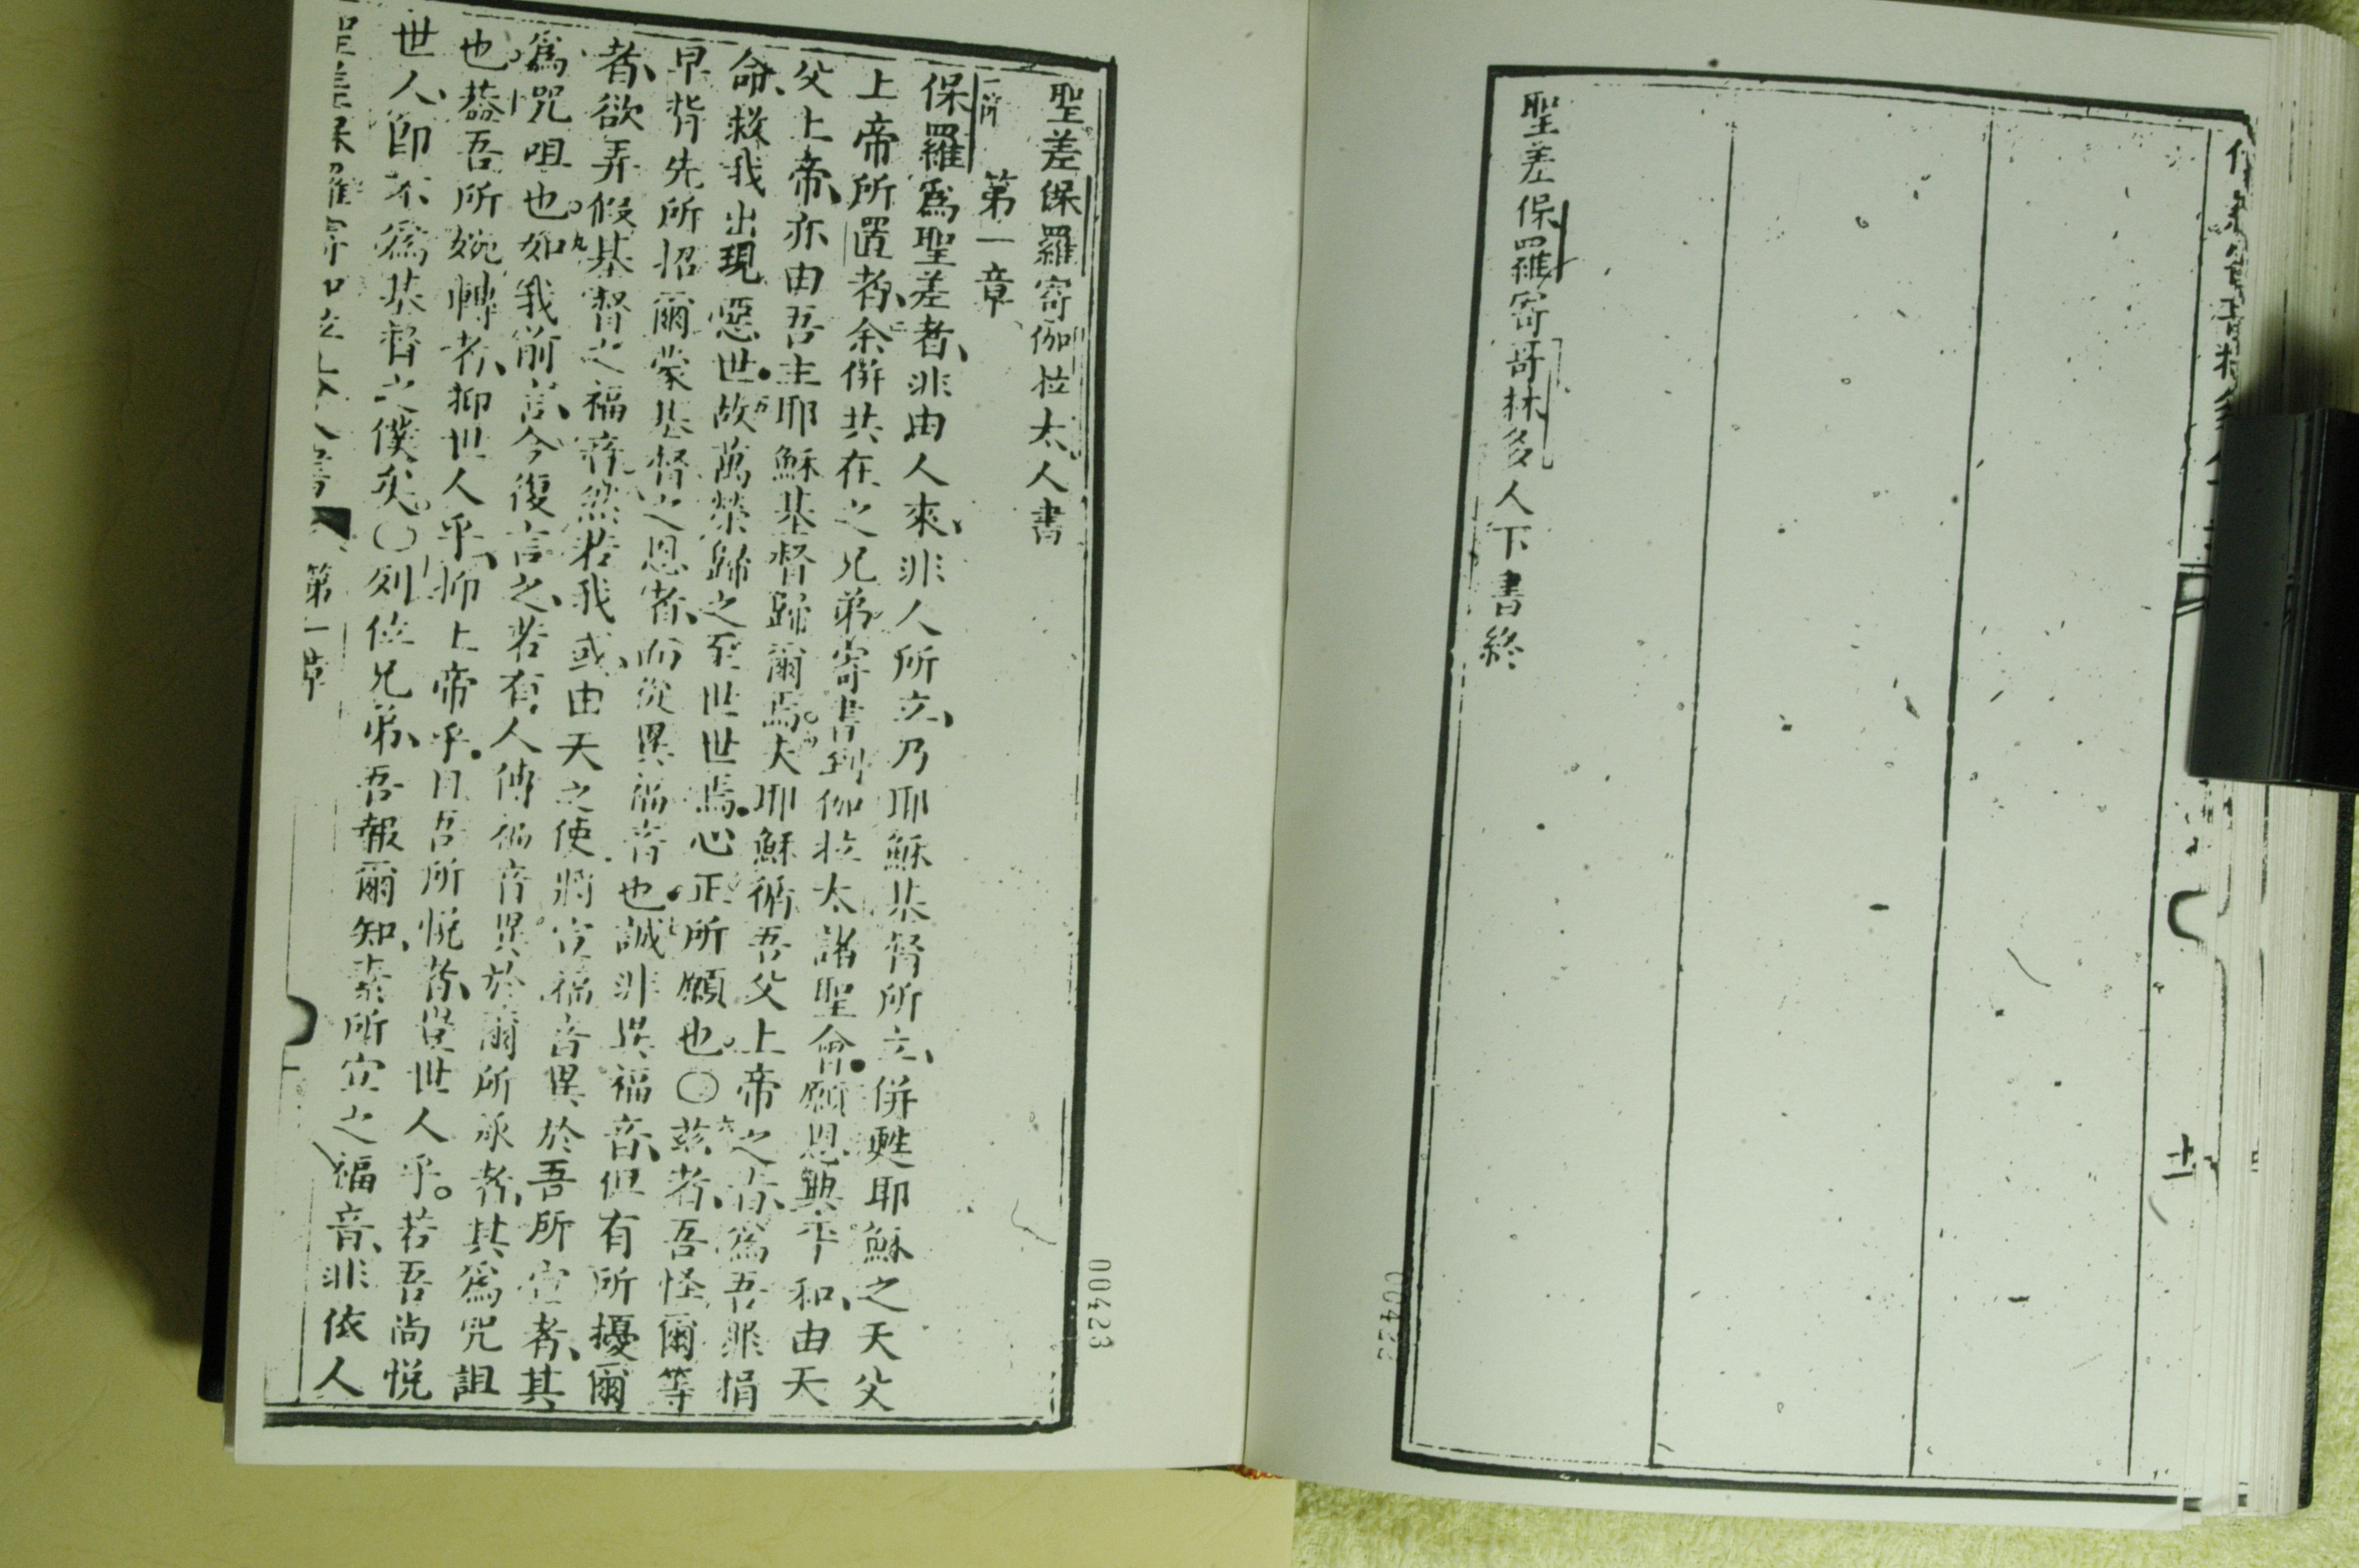 聖差保羅寄哥林多人下書終
聖差保羅寄伽拉太人書
第一章
保羅爲聖差者、非由人來、非人所立、乃耶穌基督所立、併甦耶穌之天父
上帝所置者、余併共在之兄弟寄書到伽拉太諸聖會。願恩與平和、由天
父上帝、亦由吾主耶穌基督歸爾焉。夫耶穌循吾父上帝之旨、爲吾罪捐
命、救我出現惡世。故萬榮歸之至世世焉。心正所願也。〇茲者、吾怪爾等
早背先所招爾蒙基督之恩者、而從異福音也。誠非異福音、但有所擾爾
者、欲弄假基督之福音、然若我或由天之使將宣福音異於吾所宣者、其
爲咒咀也。如我前言、今復言之、若有人傳福音異於爾所承者、其爲咒詛
也。葢吾所婉轉者、抑世人乎、抑上帝乎。曰吾所悅者、豈世人乎。若吾尚悅
世人、卽不爲基督之僕矣。〇列位兄弟、吾報爾知、素所宣之福音、非依人
第一章
00423